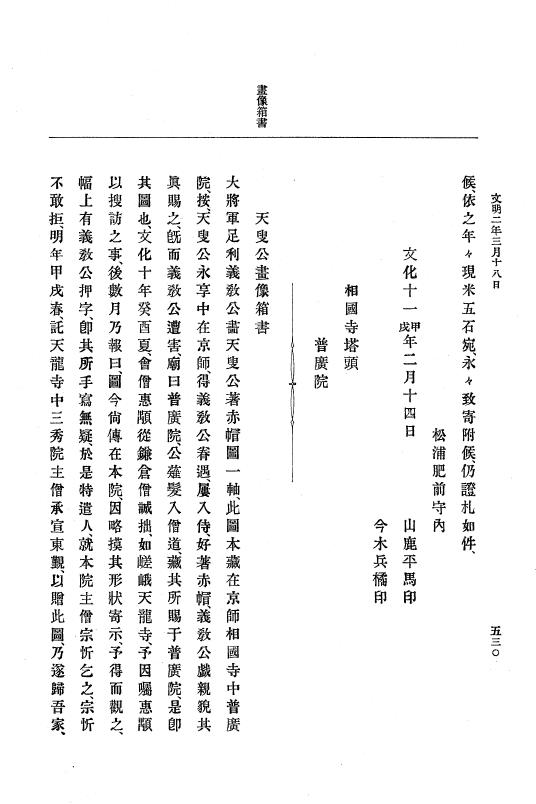 文明二年三月十八日
五三〇
畫像箱書
候、依之年々現米五石宛、永々致寄附候、仍證札如件、
松浦肥前守內
文化十一甲戌年二月十四日
山鹿平馬印
今木兵橘印
相國寺塔頭
普廣院
天叟公畫像箱書
大將軍足利義敎公畫天叟公著赤帽圖一軸、此圖本藏在京師相國寺中普廣
院、按、天叟公永享中在京師、得義敎公眷遇、屢入侍、好著赤帽、義敎公戲親貌其
眞賜之、旣而義敎公遭害、廟曰普廣院、公薙髮入僧道、藏其所賜于普廣院、是卽
其圖也、文化十年癸酉夏、會僧惠顒從鎌倉僧誠拙、如嵯峨天龍寺、予因囑惠顒
以搜訪之事、後數月乃報曰、圖今尙傳在本院、因略摸其形狀寄示、予得而觀之、
幅上有義敎公押字、卽其所手寫無疑、於是特遣人、就本院主僧宗忻乞之、宗忻
不敢拒、明年甲戌春、託天龍寺中三秀院主僧承宣東覲、以贈此圖、乃遂歸吾家、